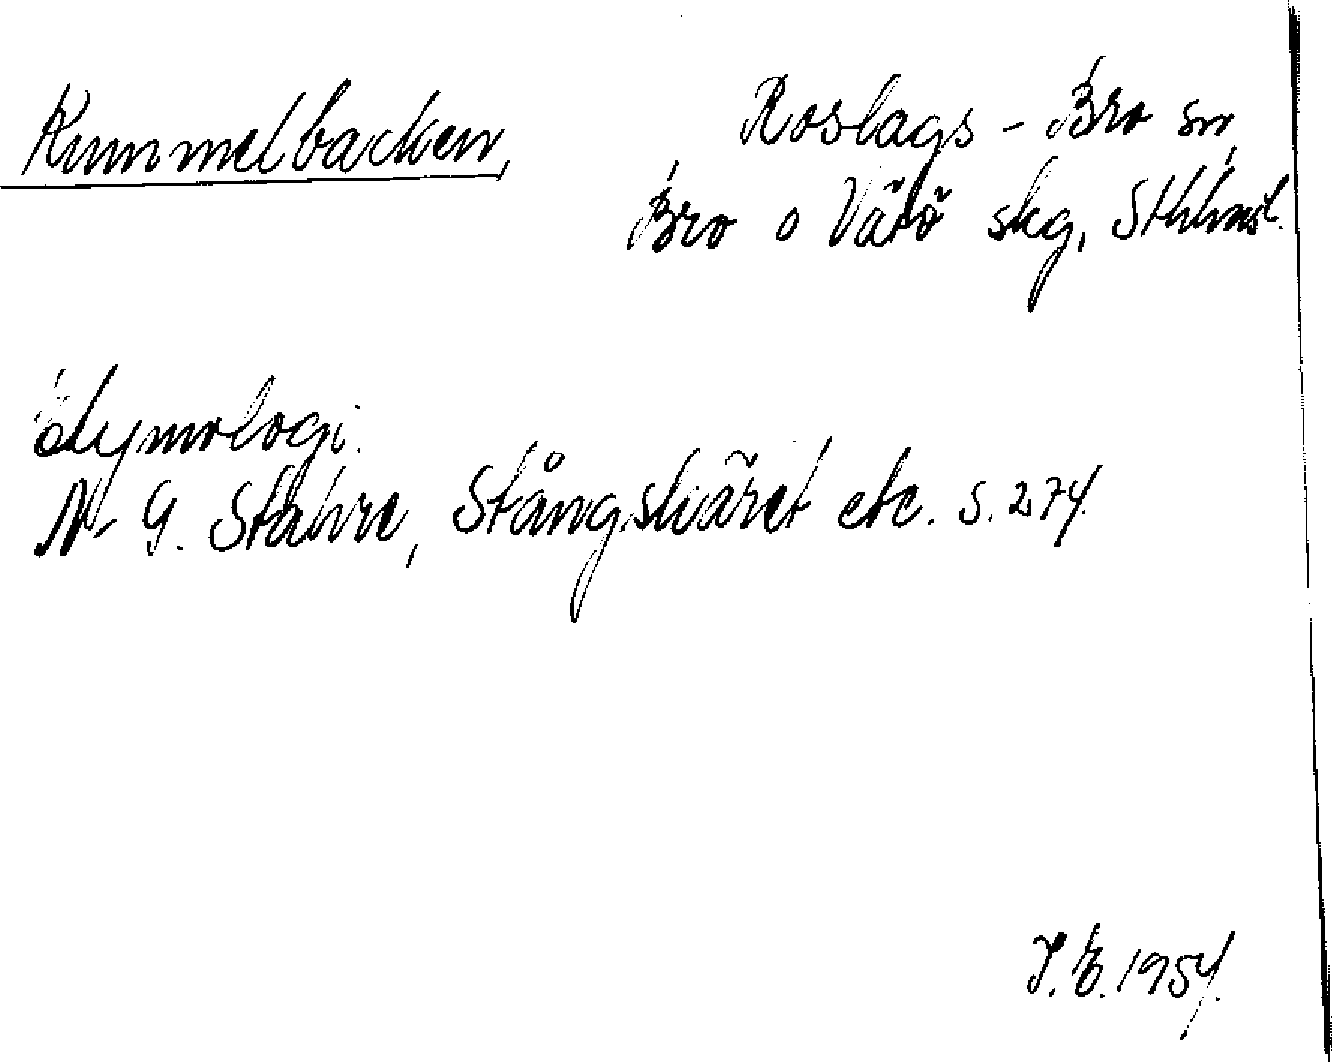 Kummelbacken,
Roslags-Bro sn,
Bro o Vätö skg, Sthlms l.
Etymologi.
N G. Stahre, Stångskäret etc. s. 274.
I. E. 1954.